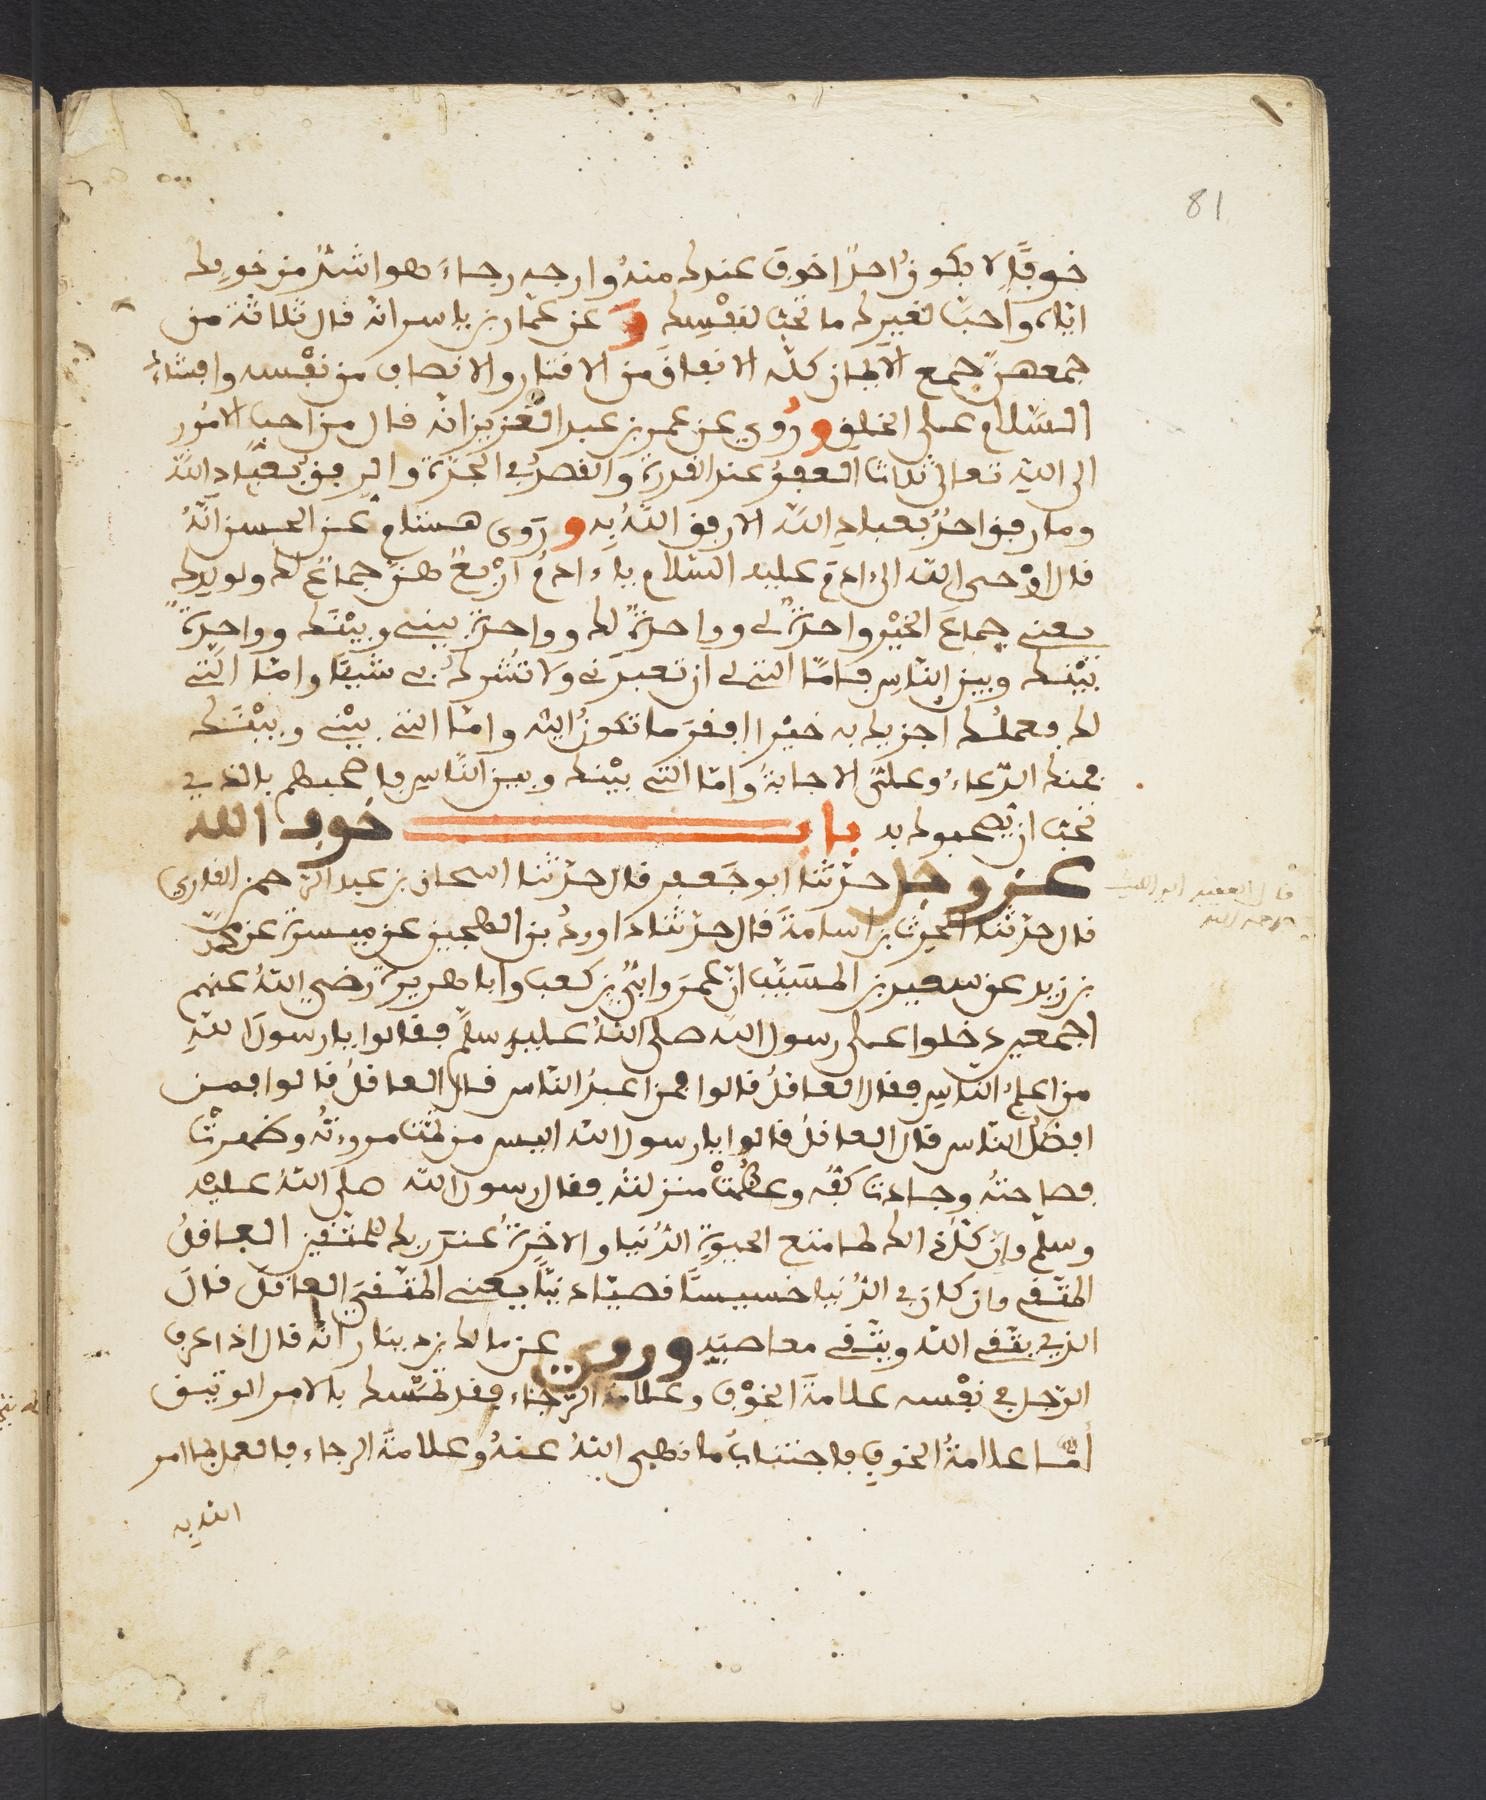 81
خوفا لا يكون احدا خوف عندك منه وارجه رجاء هو اشد من خوفك
اياه واحب لغيرك ما تحب لنفسك و عن عمار بن ياسر انه قال ثلاثة من
جمعهن جمع الايمان كله الانفاق من الاقتار والانصاف من نفسه وافشاء
السلام على الخلق و روي عن عمر بن عبد العزيز انه قال من احب الامور
الى الله تعالى ثلاثا العفو عند القدرة والقصد في الجدة والرفق بعباد الله
وما رفق احد بعباد الله الا رفق الله به و روى هشام عن الحسن انه
قال اوحى الله الى ادم عليه السلام يا ادم اربع هن جماع لك ولولدك
يعني جماع الخير واحدة لي وواحدة لك وواحدة بيني وبينك وواحدة
بينك وبين الناس فاما التي لي ان تعبدني ولا تشرك بي شيئا واما التي
لك فعملك اجزيك به خيرا افقر ما تكون اليه واما التي بيني وبينك
فمنك الدعاء وعلى الاجابة واما التي بينك وبين الناس فاصحبهم بالذي
تحب ان يصحبوك به باب خوف الله
عز وجل حدثنا ابو جعفر قال حدثنا اسحاق بن عبد الرحمن القاري
قال الفقيه ابو الليث
رحمه الله
قال حدثنا الحرث بن اسامة قال حدثنا داوود بن المحبر عن ميسرة عن محمد
بن زيد عن سعيد بن المسيب ان عمر وابي بن كعب وابا هريرة رضي الله عنهم
اجمعين دخلوا على رسول الله صلى الله عليه وسلم فقالوا يا رسول الله
من اعلم الناس فقال العاقل قالوا فمن اعبد الناس قال العاقل قالوا فمن
افضل الناس قال العاقل قالوا يا رسول الله اليس من تمت مروءته وظهرت
فصاحته وجادت كفه وعظمت منزلته فقال رسول الله صلى الله عليه
وسلم وان كل ذالك لما متع الحيوة الدنيا والاخرة عند ربك للمتقين العاقل
المتقي وان كان في الدنيا خسيسا قصيا دنيا يعني المتقي العاقل قال
الذي يتقي الله ويتقي معاصيه وروي عن مالك بن دينار انه قال اذا عرف
الرجل في نفسه علامة الخوف وعلامة الرجاء فقد تمسك بالامر الوثيق
اما علامة الخوف فاجتناب ما نهى الله عنه وعلامة الرجاء فالعمل بما امر
الله به